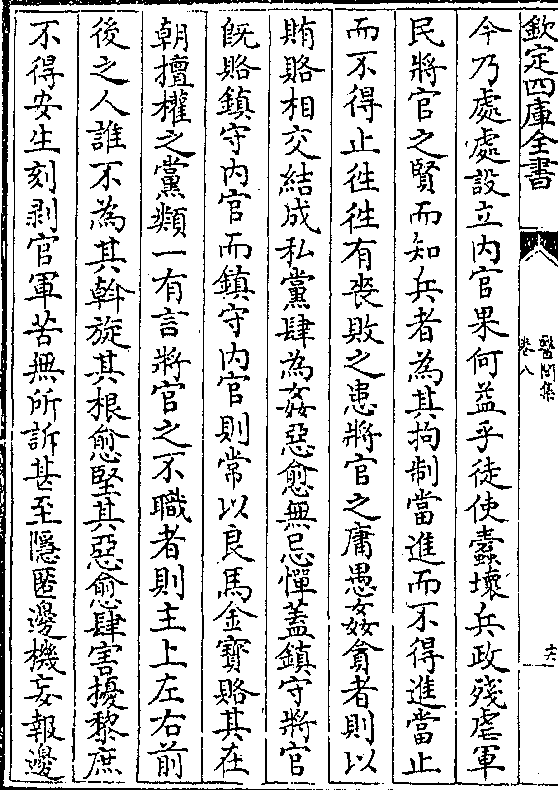 欽定四庫全書
醫閭集
卷八
今乃處處設立内官果何益乎徒使蠹壞兵政殘虐軍
民將官之賢而知兵者為其拘制當進而不得進當止
而不得止徃徃有喪敗之患將官之庸愚姦貪者則以
賄賂相交結成私黨肆為姦惡愈無忌憚蓋鎮守將官
旣賂鎮守内官而鎮守内官則常以良馬金寳賂其在
朝擅權之黨類一有言將官之不職者則主上左右前
後之人誰不為其斡旋其根愈堅其惡愈肆害擾黎庶
不得安生刻剥官軍苦無所訴甚至隱匿邊機妄報邊